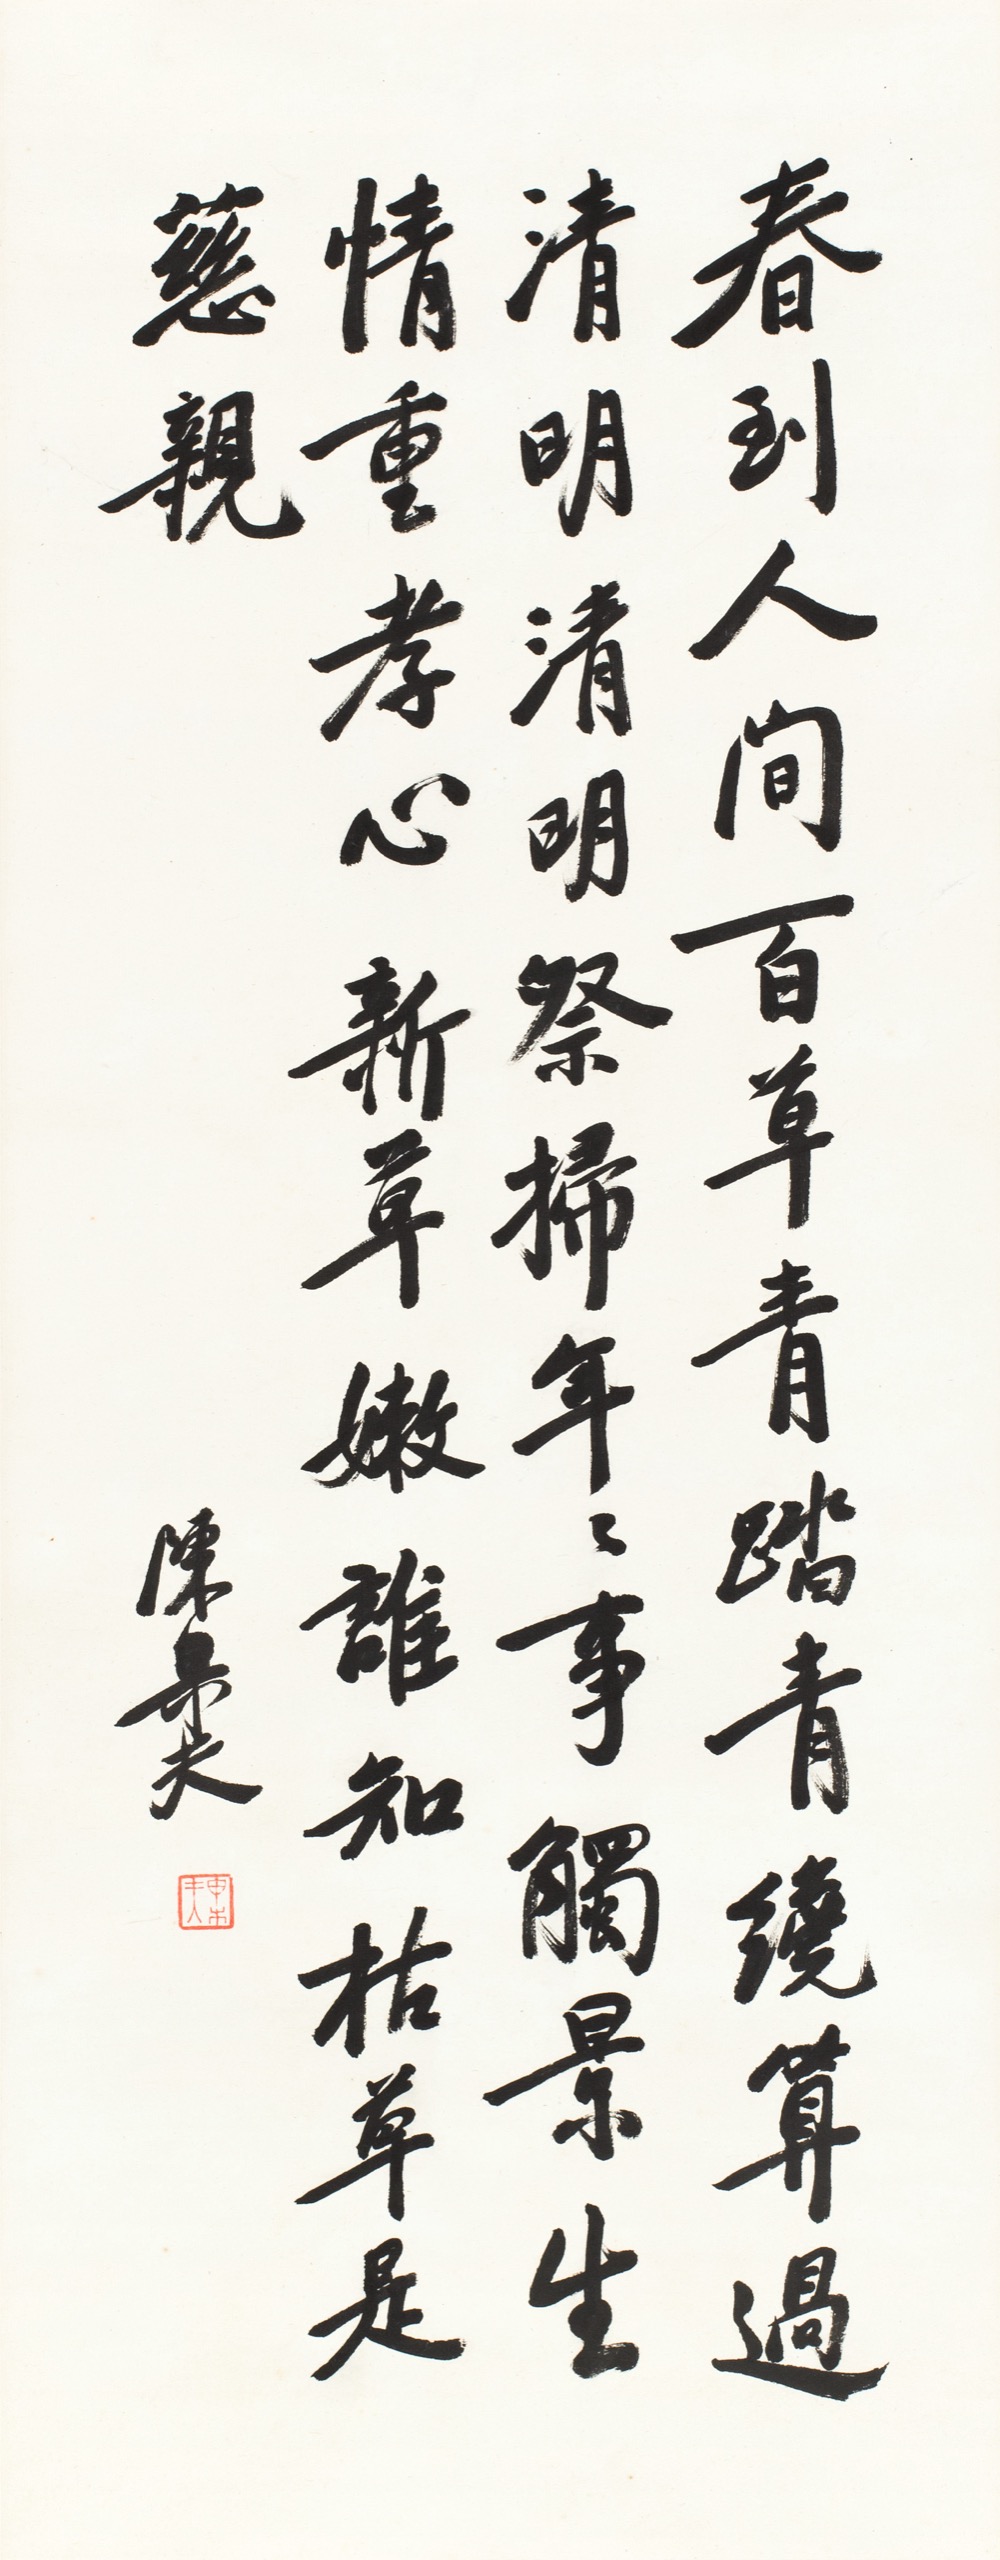 春到人间百草青踏青繞算過
清明清明祭掃年〻事觸景生
情重孝心新草嫩誰知枯草是
慈親
陳景夫